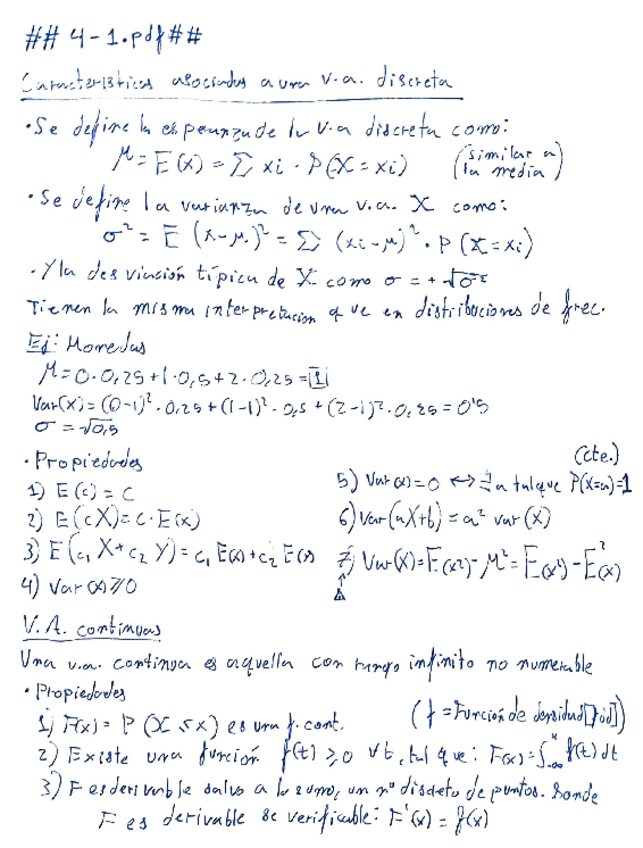 ## 4-1.pdf##
Características asociadas a una v.a. discreta
• Se define la esperanza de la v.a discreta como:
μ = E(x) = Σ xi · P(X = xi) (similar a la media)
• Se define la varianza de una v.a. X como:
σ² = E (x-μ)² = Σ (xi-μ)² · P (X = xi)
• Y la desviación típica de X como σ = +√σ²
Tienen la misma interpretación que en distribuciones de frec.
Ej: Monedas
μ = 0·0,25 + 1·0,5 + 2·0,25 = 1
Var(x) = (0-1)²·0,25 + (1-1)²·0,5 + (2-1)²·0,25 = 0'5
σ = √0,5
• Propiedades
1) E(c) = c
2) E(cX) = c·E(x)
3) E(c₁ X + c₂ Y) = c₁ E(x) + c₂ E(x)
4) Var(x) ≥ 0
(cte.)
5) Var(x) = 0 ↔ ∃ a tal que P(X=a) = 1
6) Var(aX+b) = a² var(X)
7) Var(X) = E(x²) - μ² = E(x²) - E²(x)
V.A. continuas
Una v.a. continua es aquella con rango infinito no numerable
• Propiedades
1) F(x) = P (X ≤ x) es una f. cont. (f = Función de densidad [fdd])
2) Existe una función f(t) ≥ 0 ∀t, tal que: F(x) = ∫_{-∞}^{x} f(t) dt
3) F es derivable salvo a lo sumo, un nº discreto de puntos. Donde
F es derivable se verifica: F'(x) = f(x)